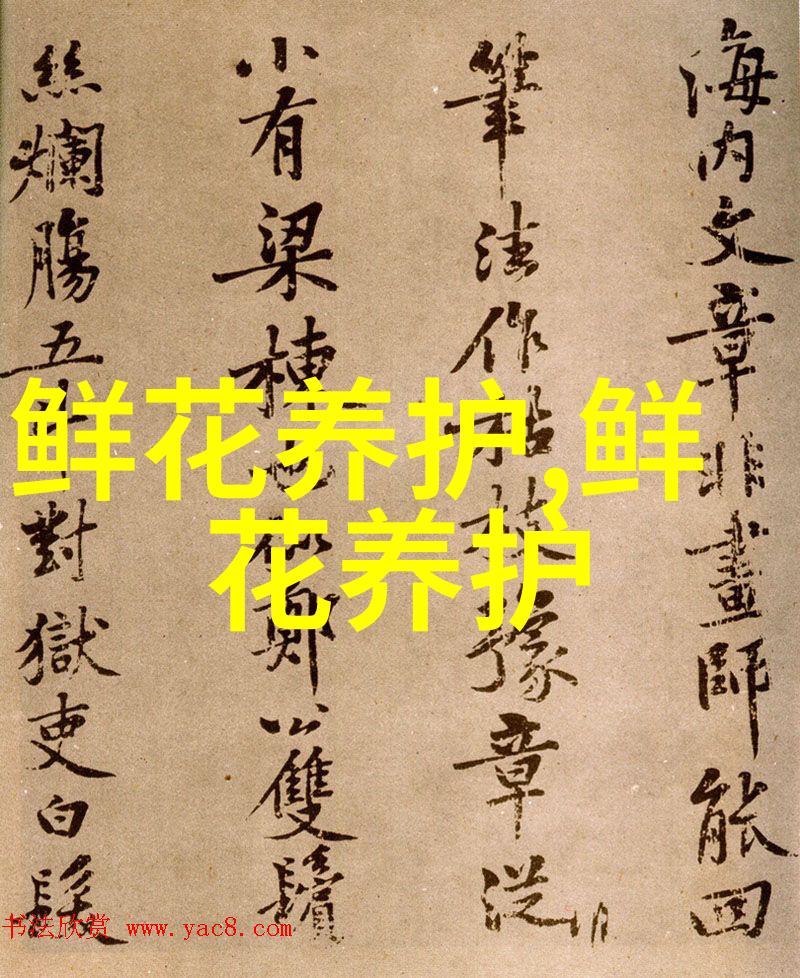 海内文章非畫師能回
筆法作枯枝豫章從
小有梁棟也似鄭公雙鬢
絲爛腸五斗對獄吏白髮
鲜花养护,鲜
花养护
书法欣赏 www.yac8.com